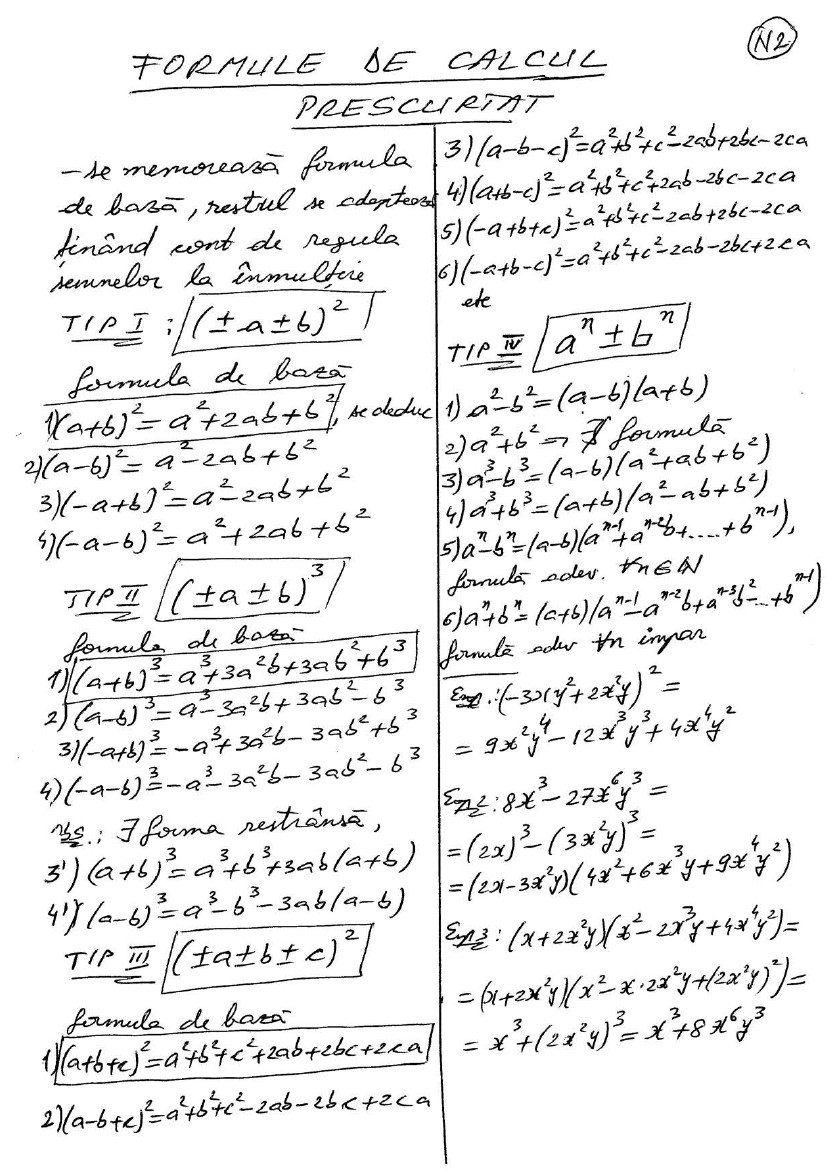 N2
FORMULE DE CALCUL
PRESCURTAT
– se memorează formula
de bază, restul se adaptează
ținând cont de regula
semnelor la înmulțire
TIP I : (±a±b)²
formula de bază
1)(a+b)² = a²+2ab+b², se deduc
2)(a-b)² = a²-2ab+b²
3)(-a+b)² = a²-2ab+b²
4)(-a-b)² = a²+2ab+b²
TIP II (±a±b)³
formula de bază
1)(a+b)³ = a³+3a²b+3ab²+b³
2)(a-b)³ = a³-3a²b+3ab²-b³
3)(-a+b)³ = -a³+3a²b-3ab²+b³
4)(-a-b)³ = -a³-3a²b-3ab²-b³
Obs.: ∃ forma restrânsă,
3')(a+b)³ = a³+b³+3ab(a+b)
4')(a-b)³ = a³-b³-3ab(a-b)
TIP III (±a±b±c)²
formula de bază
1)(a+b+c)²=a²+b²+c²+2ab+2bc+2ca
2)(a-b+c)²=a²+b²+c²-2ab-2bc+2ca
3)(a-b-c)²=a²+b²+c²-2ab+2bc-2ca
4)(a+b-c)²=a²+b²+c²+2ab-2bc-2ca
5)(-a+b+c)²=a²+b²+c²-2ab+2bc-2ca
6)(-a+b-c)²=a²+b²+c²-2ab-2bc+2ca
etc
TIP IV aⁿ±bⁿ
1) a²-b²=(a-b)(a+b)
2) a²+b² ⇒ ∄ formulă
3) a³-b³=(a-b)(a²+ab+b²)
4) a³+b³=(a+b)(a²-ab+b²)
5) aⁿ-bⁿ=(a-b)(aⁿ⁻¹+aⁿ⁻²b+.....+bⁿ⁻¹),
formulă adev. ∀n∈N
6) aⁿ+bⁿ=(a+b)(aⁿ⁻¹-aⁿ⁻²b+aⁿ⁻³b²-...+bⁿ⁻¹)
formulă adev ∀n impar
Exp1:(-3xy²+2x²y)² =
= 9x²y⁴-12x³y³+4x⁴y²
Exp2: 8x³-27x⁶y³ =
=(2x)³-(3x²y)³=
=(2x-3x²y)(4x²+6x³y+9x⁴y²)
Exp3: (x+2x²y)(x²-2x³y+4x⁴y²)=
=(x+2x²y)(x²-x·2x²y+(2x²y)²)=
= x³+(2x²y)³= x³+8x⁶y³